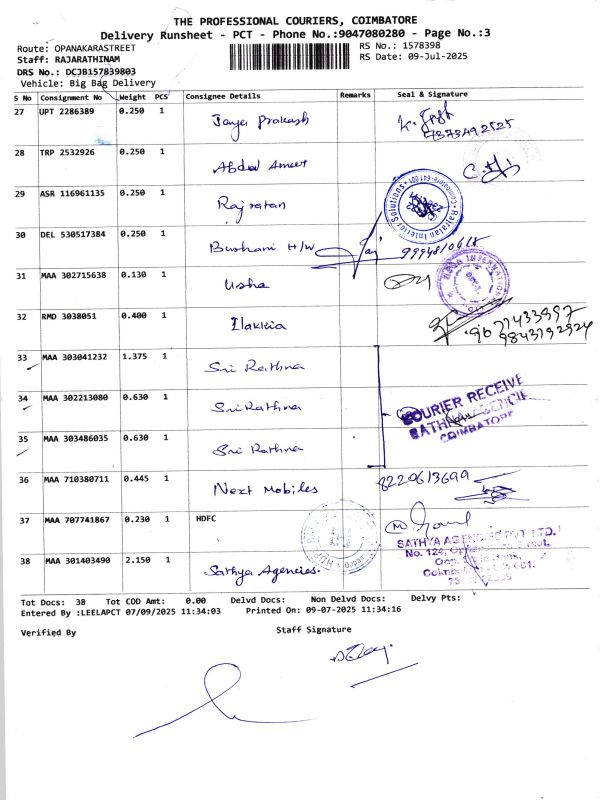 THE PROFESSIONAL COURIERS, COIMBATORE
Delivery Runsheet - PCT - Phone No.:9047080280 - Page No.:3
Route: OPANAKARASTREET
RS No.: 1578398
Staff: RAJARATHINAM
RS Date: 09-Jul-2025
DRS No.: DCJB157839803
Vehicle: Big Bag Delivery
S No Consignment No Weight PCS Consignee Details Remarks Seal & Signature
27 UPT 2286389 0.250 1 Jaya Prakash
7373492525
28 TRP 2532926 0.250 1 Abdul Ameer
29 ASR 116961135 0.250 1 Rajratan
Rajratan Interior Solutions Coimbatore-641 001
30 DEL 530517384 0.250 1 Bushani H/W 9994810418
31 MAA 302715638 0.130 1 Usha
INTERNATIONAL
32 RMD 3038051 0.400 1 Ilakkia
9677433997
9843192924
33 MAA 303041232 1.375 1 Sri Rathna
34 MAA 302213080 0.630 1 Sri Rathna
COURIER RECEIVE
RATHNA AGENCIE
COIMBATORE
35 MAA 303486035 0.630 1 Sri Rathna
36 MAA 710380711 0.445 1 Next Mobiles 8220613699
37 MAA 707741867 0.230 1 HDFC
SATHYA AGENCIES PVT. LTD.
No. 124,
38 MAA 301403490 2.150 1 Sathya Agencies.
Tot Docs: 38 Tot COD Amt: 0.00 Delvd Docs: Non Delvd Docs: Delvy Pts:
Entered By :LEELAPCT 07/09/2025 11:34:03 Printed On: 09-07-2025 11:34:16
Verified By Staff Signature